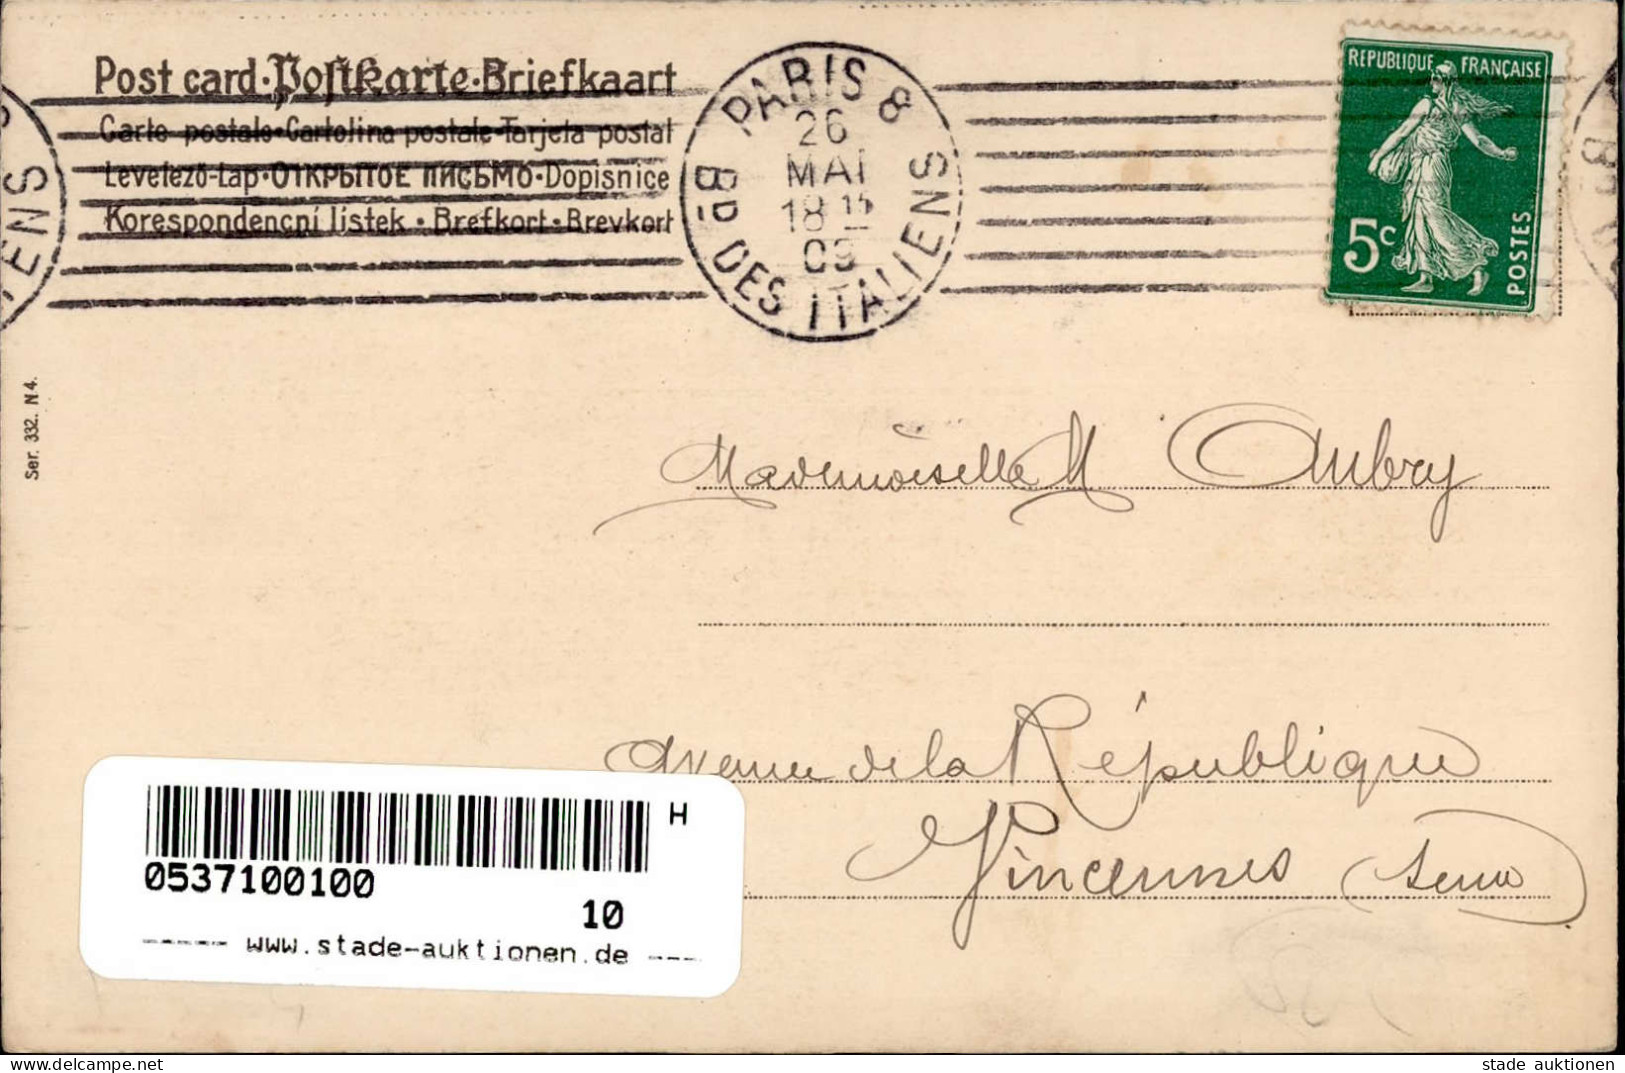 Post card·Postkarte·Briefkaart
Carte postale·Cartolina postale·Tarjeta postal
Levelező-Lap·Открытое письмо·Dopisnice
Korespondenční lístek·Brefkort·Brevkort
PARIS 8
26
MAI
18 15
09
Bd DES ITALIENS
REPUBLIQUE FRANÇAISE
5c
POSTES
Ser. 332. N 4.
Mademoiselle M Aubry
Avenue de la République
Vincennes (Seine)
H
0537100100
10
----- www.stade-auktionen.de ----
stade auktionen